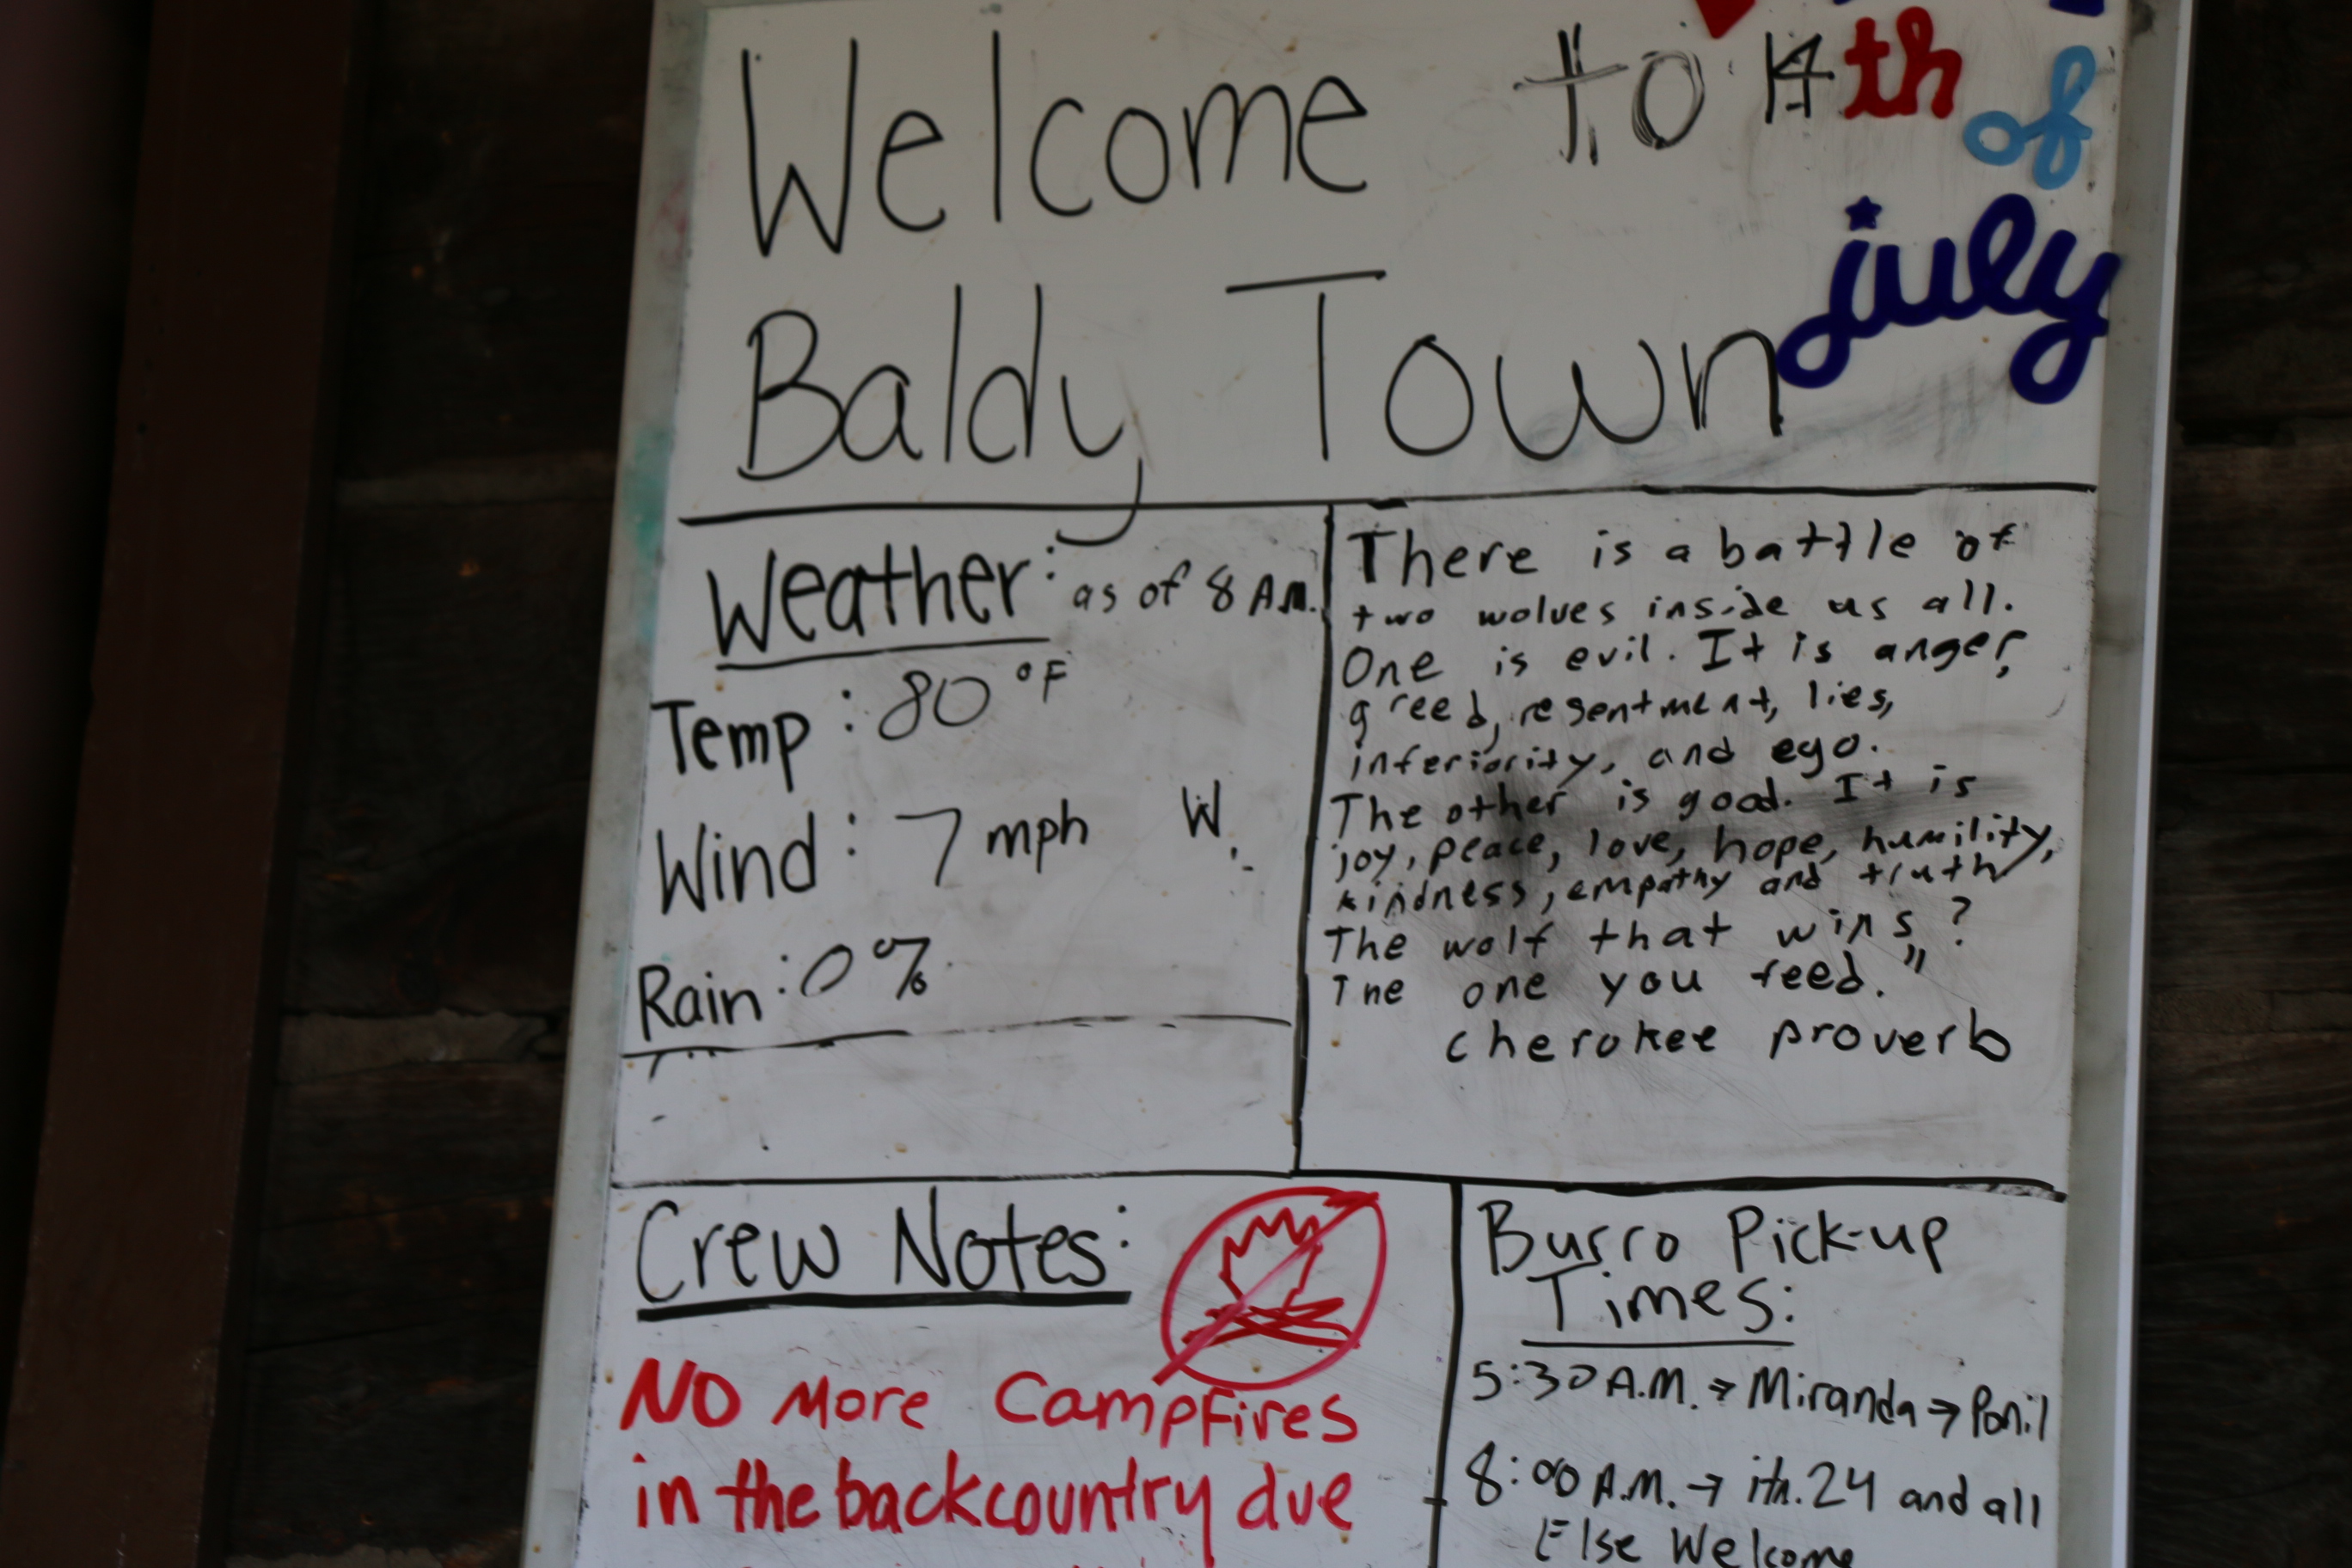 Welcome to 4th
of
july
Baldy Town
Weather: as of 8 A.M.
Temp: 80°F
Wind: 7 mph W
Rain: 0%
There is a battle of
two wolves inside us all.
One is evil. It is anger,
greed, resentment, lies,
inferiority, and ego.
The other is good. It is
joy, peace, love, hope, humility,
kindness, empathy and truth
The wolf that wins?
The one you feed."
cherokee proverb
Crew Notes:
NO More Campfires
in the backcountry due
Burro Pick-up
Times:
5:30 A.M. → Miranda → Ponil
8:00 A.M. → itn. 24 and all
Else Welcome